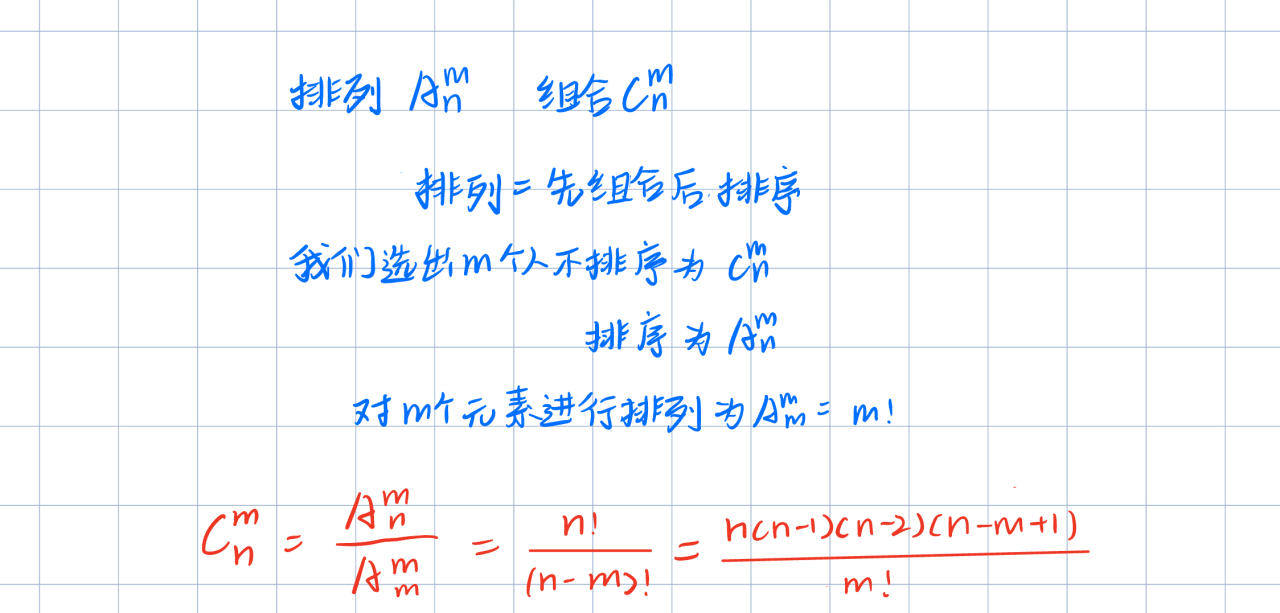 排列 A_n^m 组合 C_n^m
排列 = 先组合后排序
我们选出m个人不排序为 C_n^m
排序为 A_n^m
对m个元素进行排列为 A_m^m = m!
C_n^m = A_n^m / A_m^m = n! / (n-m)! = n(n-1)(n-2)(n-m+1) / m!